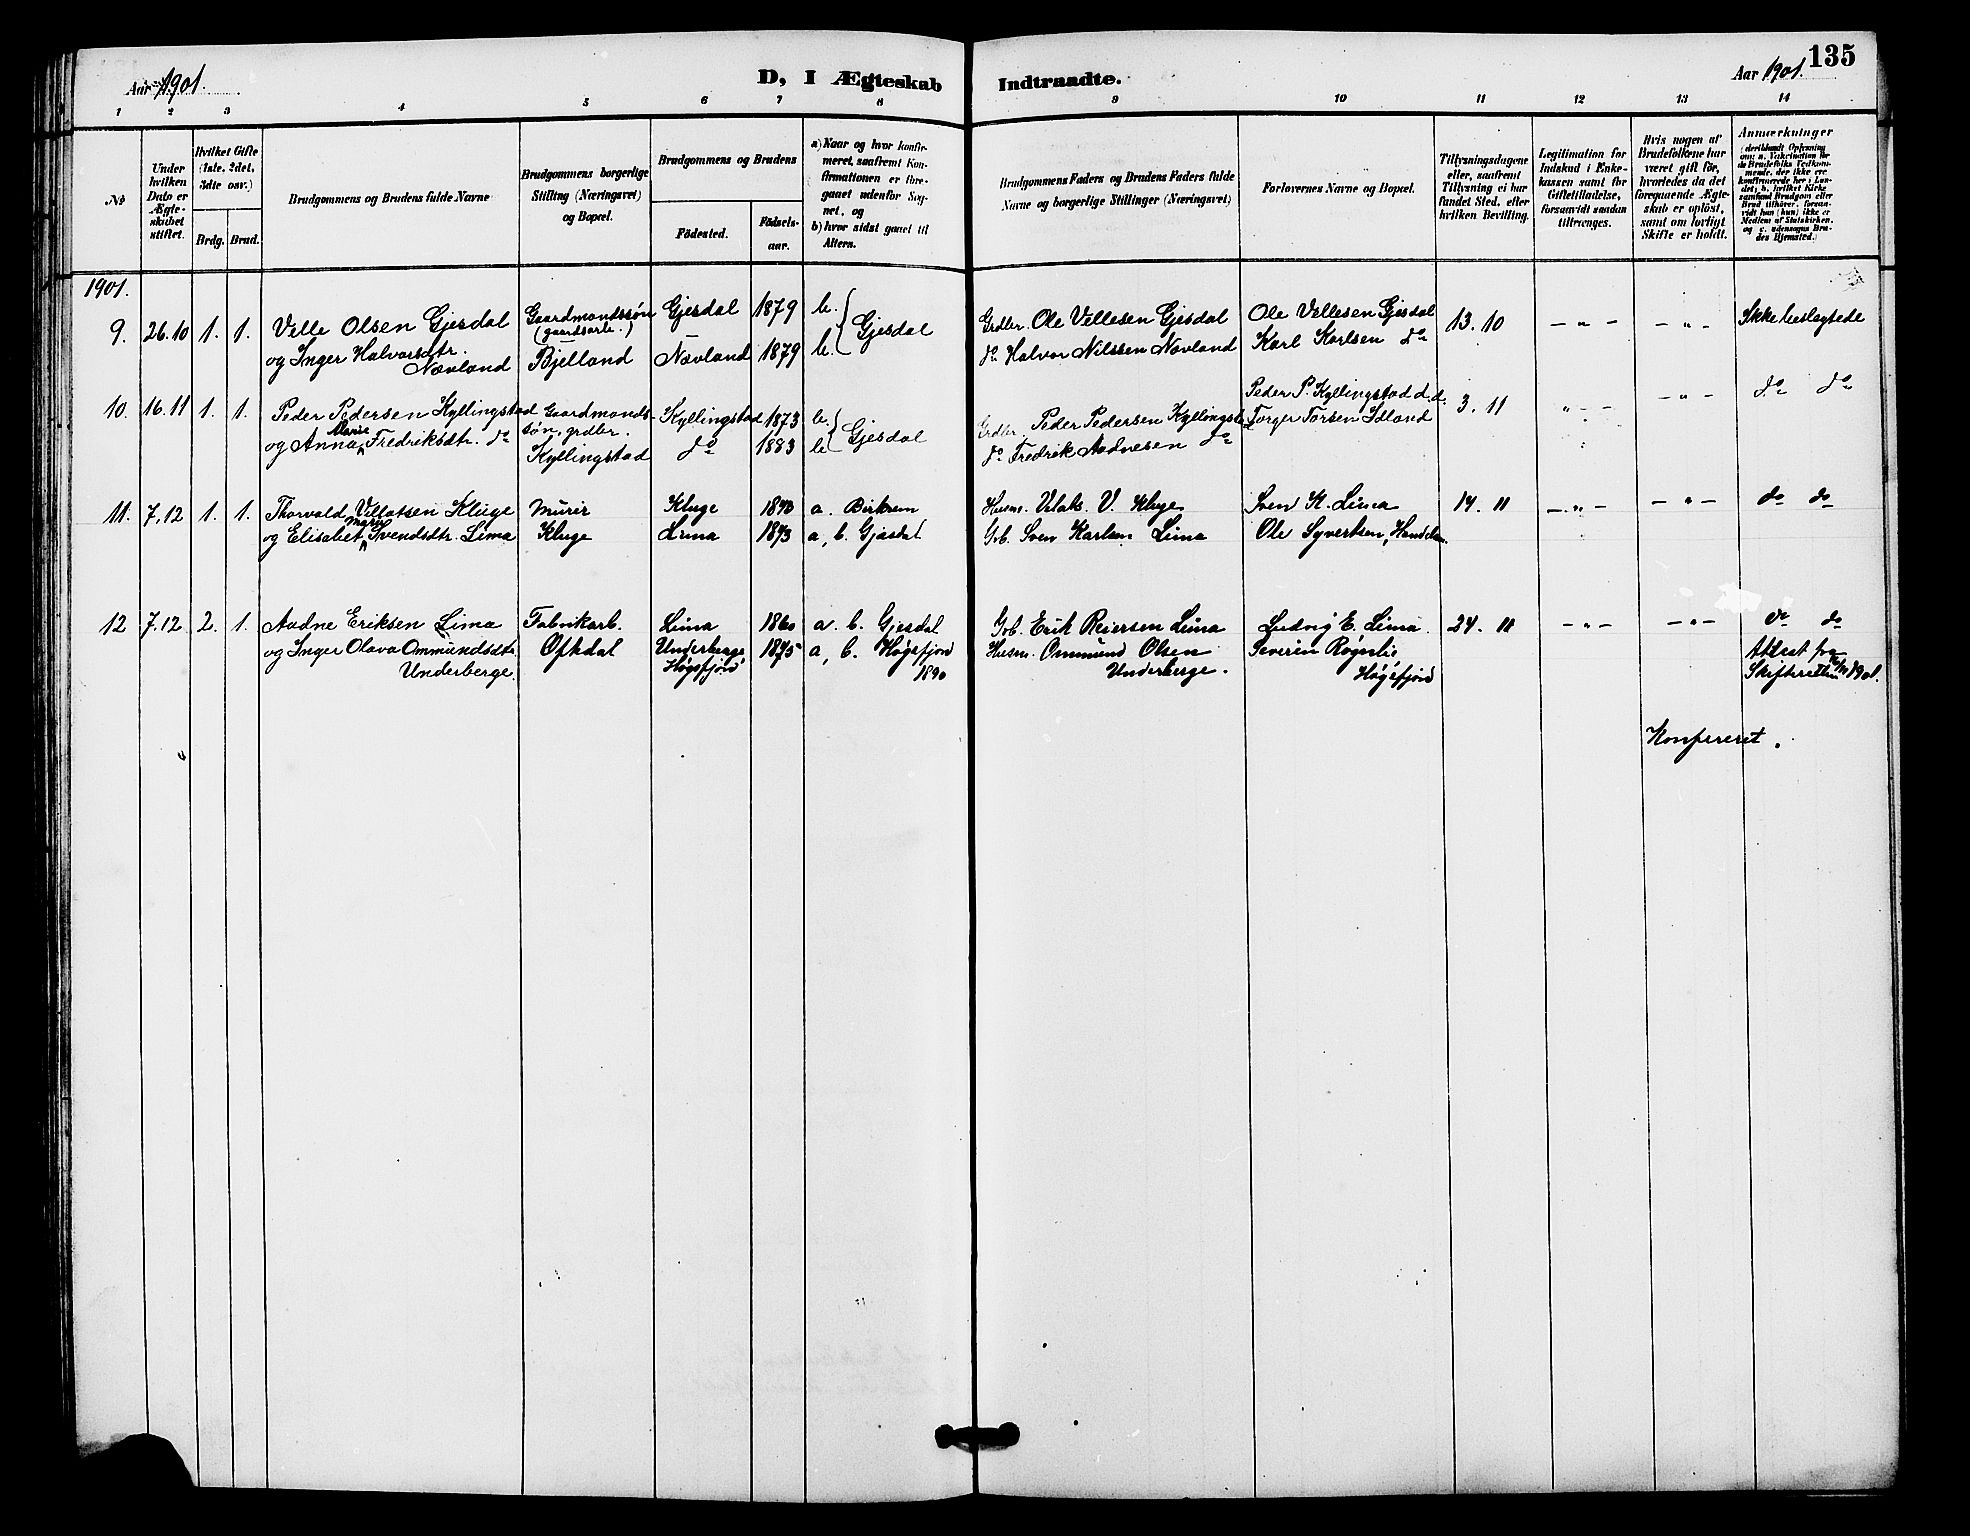 135
Aar 1901.
D, I Ægteskab
Indtraadte.
Aar 1901.
1 2 3 4 5 6 7 8 9 10 11 12 13 14
No
Under hvilken Dato er Ægteskabet stiftet.
Hvilket Gifte (1ste, 2det, 3dte osv.)
Brdg. Brud.
Brudgommens og Brudens fulde Navne
Brudgommens borgerlige Stilling (Næringsvei) og Bopæl.
Brudgommens og Brudens
Födested.
Födselsaar.
a) Naar og hvor konfirmeret, saafremt Konfirmationen er foregaaet udenfor Sognet, og
b) hvor sidst gaaet til Alters.
Brudgommens Faders og Brudens Faders fulde Navne og borgerlige Stillinger (Næringsvei)
Forlovernes Navne og Bopæl.
Tillysningsdagene eller, saafremt Tillysning ei har fundet Sted, efter hvilken Bevilling.
Legitimation for Indskud i Enkekassen samt for Giftetilladelse, forsaavidt saadan tiltrænges.
Hvis nogen af Brudefolkene har været gift för, hvorledes da det foregaaende Ægteskab er oplöst, samt om lovligt Skifte er holdt.
Anmærkninger
1901.
9. 26.10 1. 1. Velle Olsen Gjesdal Gaardmandssøn Gjesdal 1879 b. Gjesdal Grdbr. Ole Vellesen Gjesdal Ole Vellesen Gjesdal 13. 10 — „ — — „ — Ikke beslægtede
(gaardsarb.)
og Inger Halvorsdtr. Nævland Bjelland Nævland 1879 b. do Halvor Nilssen Nævland Karl Karlsen do
10. 16.11 1. 1. Peder Pedersen Kyllingstad Gaardmandssøn, grdbr. Kyllingstad 1873 b. Gjesdal Grdbr. Peder Pedersen Kyllingst. Peder P. Kyllingstad d.d. 3. 11 „ — — „ — do do
og Anna Marie Fredriksdtr. do Kyllingstad do 1883 b. do Fredrik Aadnesen do Torger Torsen Idland
11. 7.12 1. 1. Thorvald Villatsen Kluge Murer Kluge 1873 a. Birkrem Husm. Vilats. V. Kluge Sven K. Lima 14. 11 — „ — — „ — do do
og Elisabet Marie Svendsdtr. Lima Kluge Lima 1873 a, b. Gjesdal Grb. Sven Karlsen Lima Ole Syvertsen, Handelsm.
12 7.12 2. 1. Aadne Eriksen Lima Fabrikarb. Lima 1860 a. b. Gjesdal Grb. Erik Reiersen Lima Ludvig E. Lima. 24. 11 — „ — — „ — do do
og Inger Olava Ommundsdtr. Underberge. Oftedal Underberge Høgsfjord 1875 a, b. Høgsfjord 1890 Husm. Ommund Olsen Underberge. Severin Røgnlie Høgsfjord Attest fra Skifteretten 1901.
Konfereret.